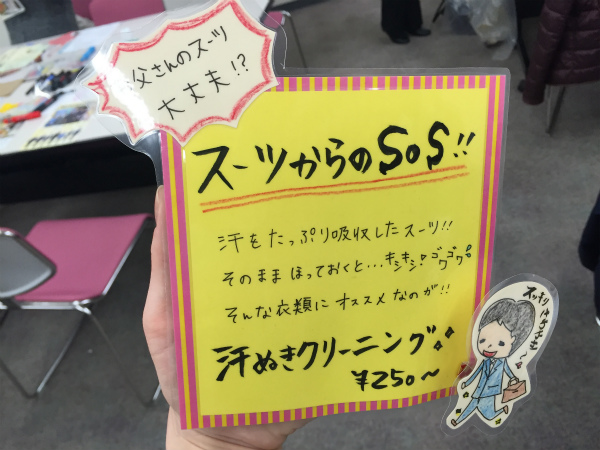 父さんのスーツ
大丈夫!?
スーツからのSOS!!
汗をたっぷり吸収したスーツ!!
そのままほっておくと…キシキシ・ゴワゴワ。
そんな衣類にオススメなのが!!
汗ぬきクリーニング
¥250~